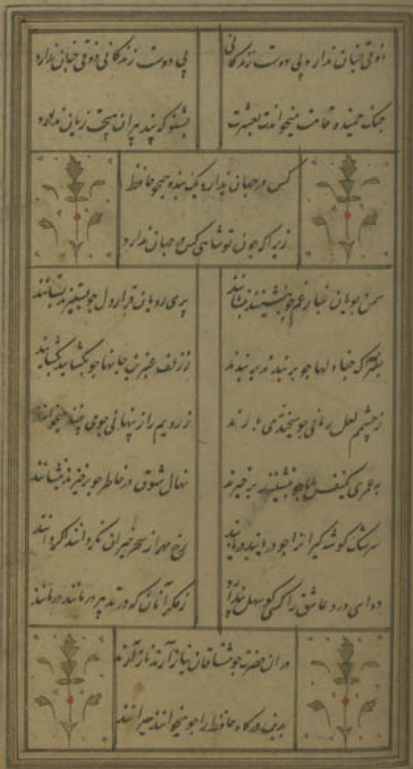 ذوقی چنان ندارد بی دوست زندگانی
بی دوست زندگانی ذوقی چنان ندارد
چنگ خمیده قامت میخواندت بعشرت
بشنو که پند پیران هیچت زیان ندارد
کس در جهان ندارد یک بنده همچو حافظ
زیرا که چون تو شاهی کس در جهان ندارد
سمن بویان غبار غم چو بنشینند بنشانند
پری رویان قرار دل چو بستیزند بستانند
بفتراک جفا دلها چو بربندند بربندند
ز زلف عنبرین جانها چو بگشایند بگشایند
ز چشمم لعل رمانی چو میخندند می بارند
ز رویم راز پنهانی چو می بینند میخوانند
بعمری یکنفس با ما چو بنشینند برخیزند
نهال شوق در خاطر چو برخیزند بنشانند
سرشک گوشه گیران را چو دریابند دریابند
رخ مهر از سحرخیزان نگردانند اگر دانند
دوای درد عاشق را کسی کو سهل پندارد
ز فکر آنان که در تدبیر درمانند درمانند
در آن حضرت چو مشتاقان نیاز آرند ناز آرند
درگاه حافظ را چو میخوانند میرانند